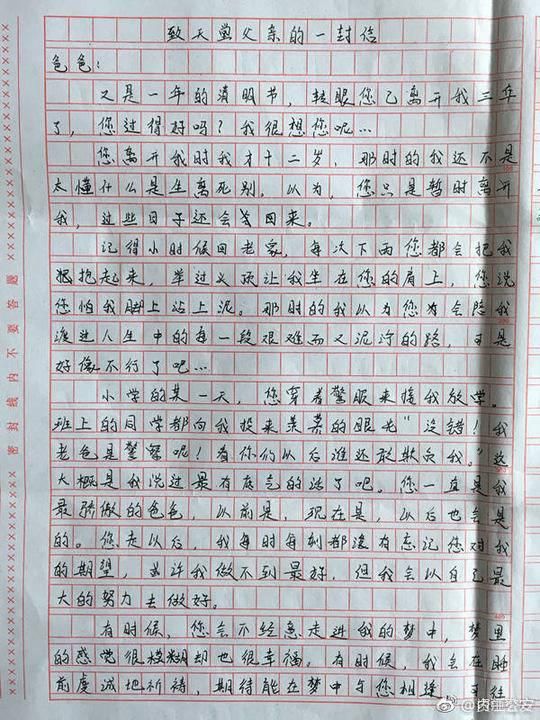 致天堂父亲的一封信
爸爸：
又是一年的清明节，转眼您已离开我三年
了，您过得好吗？我很想您呢…
您离开我时我才十二岁，那时的我还不是
太懂什么是生离死别，以为，您只是暂时离开
我，过些日子还会回来。
记得小时候回老家，每次下雨您都会把我
抱起来，举过头顶让我坐在您的肩上，您说
您怕我脚上沾上泥。那时的我以为您会陪我
渡过人生中的每一段艰难而又泥泞的路，可是
好像不行了吧…
小学的某一天，您穿着警服来接我放学。
班上的同学都向我投来羡慕的眼光“没错！我
老爸是警察呢！看你们以后谁还敢欺负我。”这
大概是我说过最有底气的话了吧。您一直是我
最骄傲的爸爸，以前是，现在是，以后也会是
的。您走以后，我每时每刻都没有忘记您对我
的期望，或许我做不到最好，但我会以自己最
大的努力去做好。
有时候，您会不经意走进我的梦中，梦里
的感觉很模糊却也很幸福。有时候，我会在睡
前虔诚地祈祷，期待能在梦中与您相逢，可往
密封线内不要答题